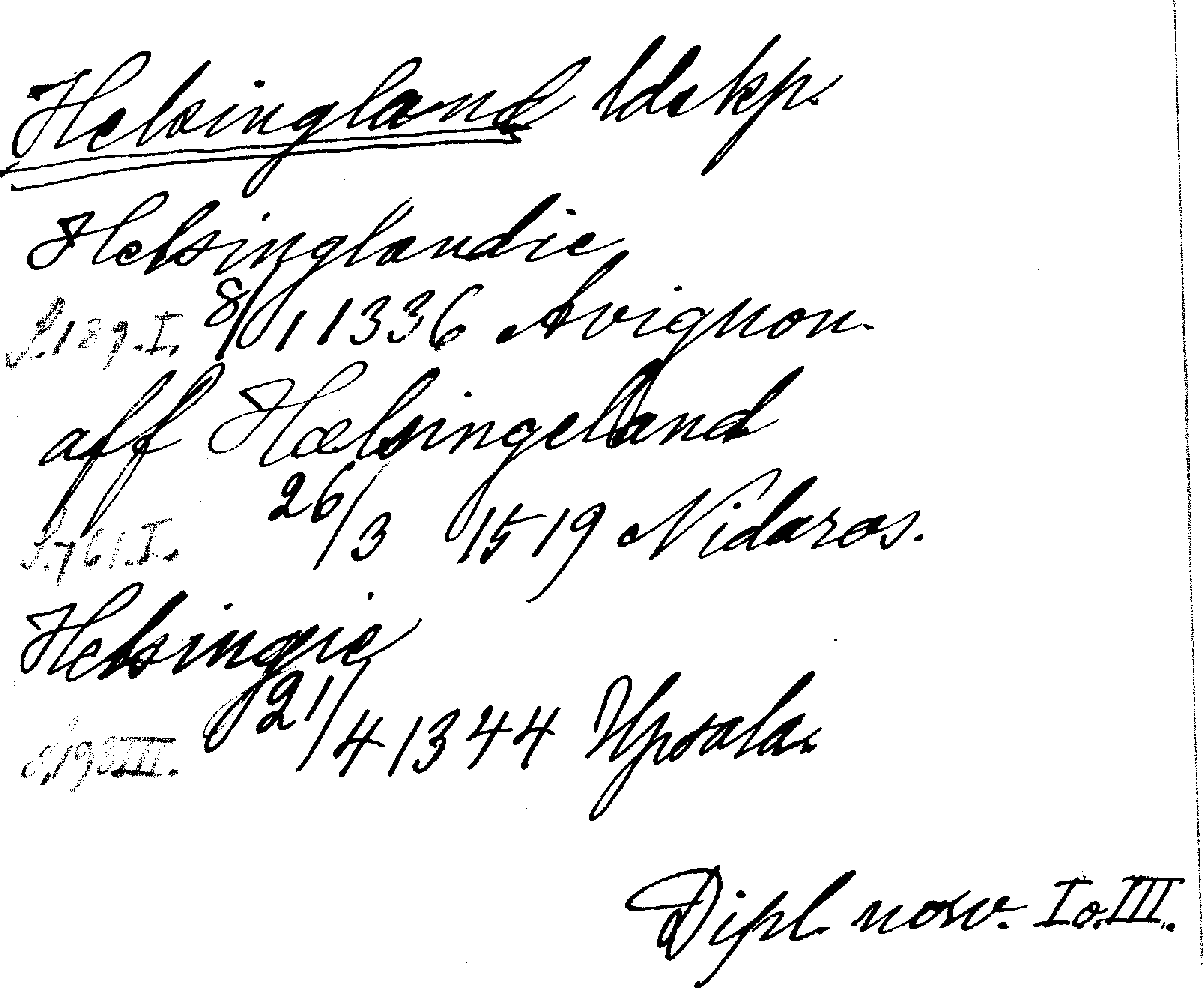 Helsingland ldskp.
Helsinglandie
S. 189. I. 8/1 1336 Avignon.
aff Hælsingeland
S. 761. I. 26/3 1519 Nidaros.
Helsingie
S. 193 III. 21/4 1344 Upsala.
Dipl. norv. I o. III.